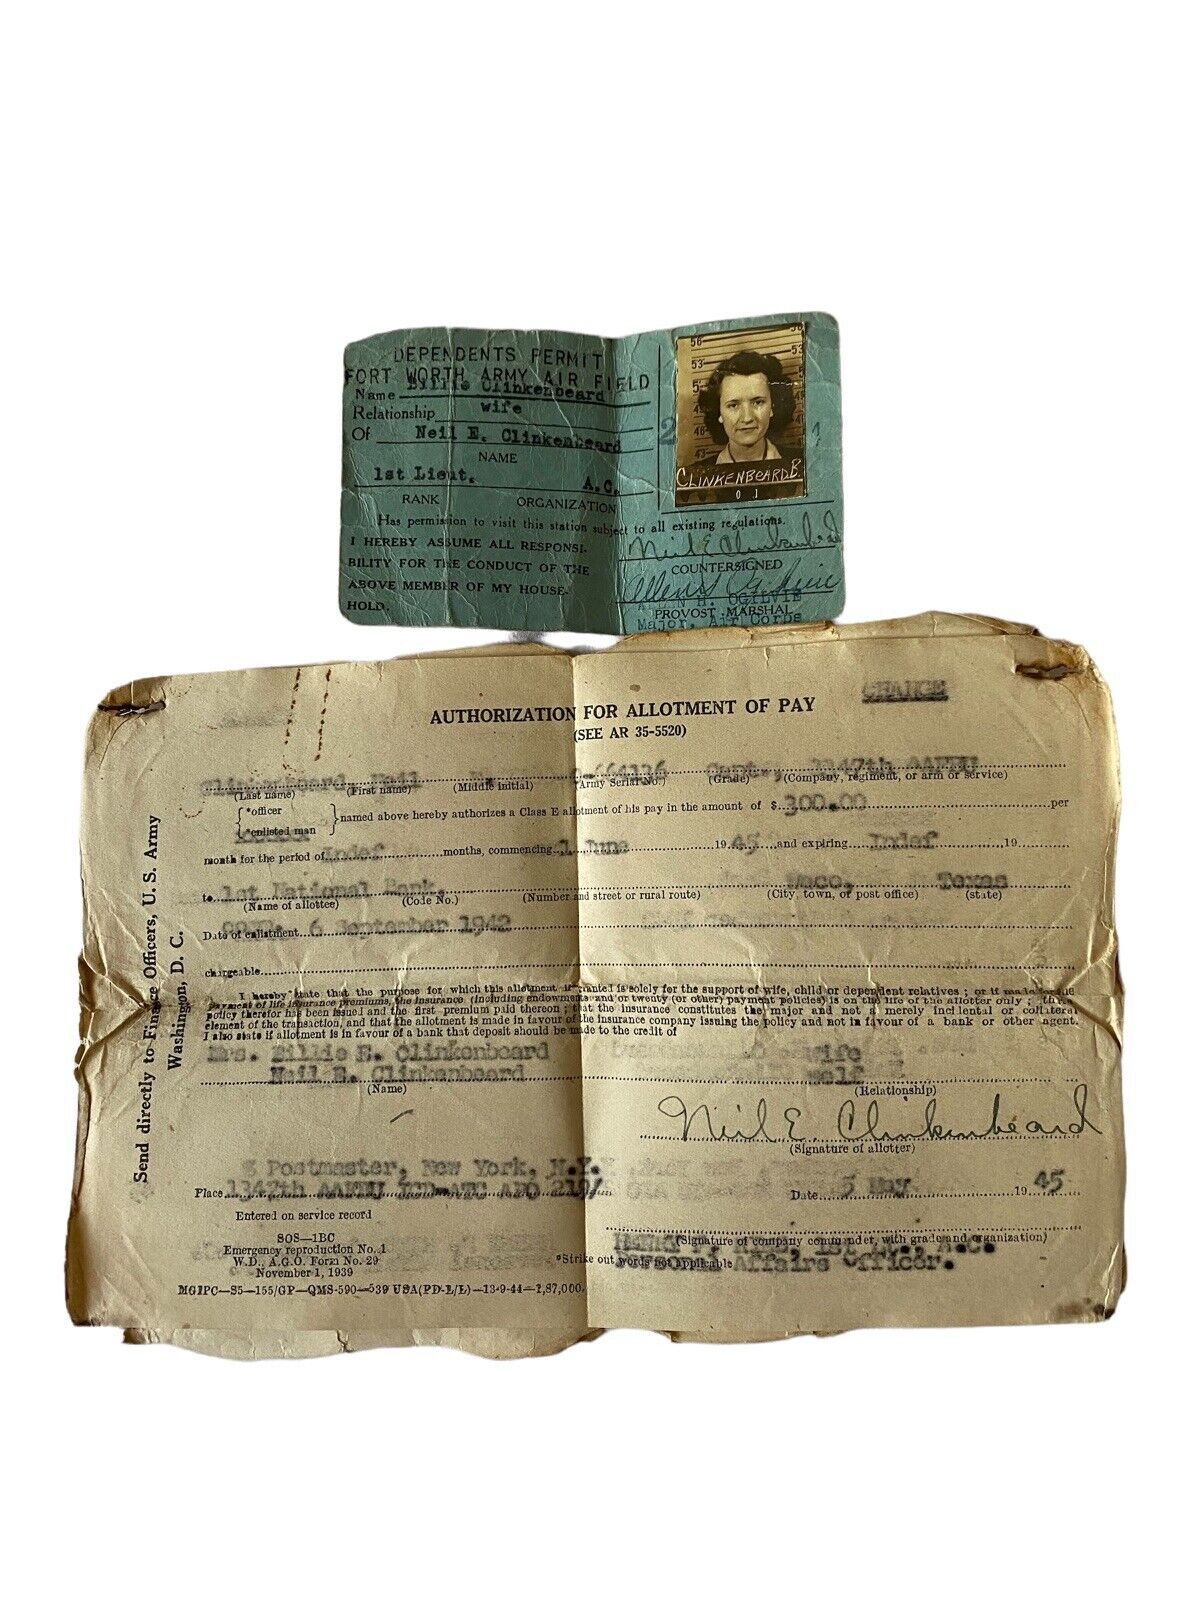 DEPENDENTS PERMIT
FORT WORTH ARMY AIR FIELD
Name Billie Clinkenbeard
Relationship wife
Of Neil E. Clinkenbeard
NAME
1st Lieut. A.C.
RANK ORGANIZATION
Has permission to visit this station subject to all existing regulations.
I HEREBY ASSUME ALL RESPONSI-
BILITY FOR THE CONDUCT OF THE
ABOVE MEMBER OF MY HOUSE-
HOLD.
56
53
43
CLINKENBEARD B.
0 1
Neil E Clinkenbeard
COUNTERSIGNED
Allen H Ogilvie
ALLEN H. OGILVIE
PROVOST MARSHAL
Major, Air Corps
CHANGE
AUTHORIZATION FOR ALLOTMENT OF PAY
(SEE AR 35-5520)
Clinkenbeard, Neil Capt., 1347th AAFBU
(Last name) (First name) (Middle initial) (Army Serial No.) (Grade) (Company, regiment, or arm or service)
*officer
*enlisted man
named above hereby authorizes a Class E allotment of his pay in the amount of $ 300.00 per
month for the period of Indef months, commencing 1 June 1945 and expiring Indef 19
to 1st National Bank, Waco, Texas
(Name of allottee) (Code No.) (Number and street or rural route) (City, town, or post office) (state)
Date of enlistment 6 September 1942
chargeable
I hereby state that the purpose for which this allotment if wanted is solely for the support of wife, child or dependent relatives ; or if made for the
payment of life insurance premiums, the insurance (including endowments and/or twenty (or other) payment policies) is on the life of the allotter only ; the
policy therefor has been issued and the first premium paid thereon ; that the insurance constitutes the major and not a merely incidental or collateral
element of the transaction, and that the allotment is made in favour of the insurance company issuing the policy and not in favour of a bank or other agent.
I also state if allotment is in favour of a bank that deposit should be made to the credit of
Mrs. Billie E. Clinkenbeard wife
Neil E. Clinkenbeard self
(Name) (Relationship)
Neil E. Clinkenbeard
(Signature of allotter)
% Postmaster, New York, N.Y.
Place 1347th AAFBU ICD-ATC APO 219 Date 5 May 1945
Entered on service record
SOS—1BC
Emergency reproduction No. 1
W.D., A.G.O. Form No. 29
November 1, 1939
(Signature of company commander, with grade and organization)
1st Lt., A.C.
*Strike out words not applicable
Personal Affairs Officer.
MGIPC—S5—155/GP—QMS-590—539 USA(PD-L/L)—13-9-44—1,87,000.
Send directly to Finance Officers, U. S. Army
Washingon, D. C.